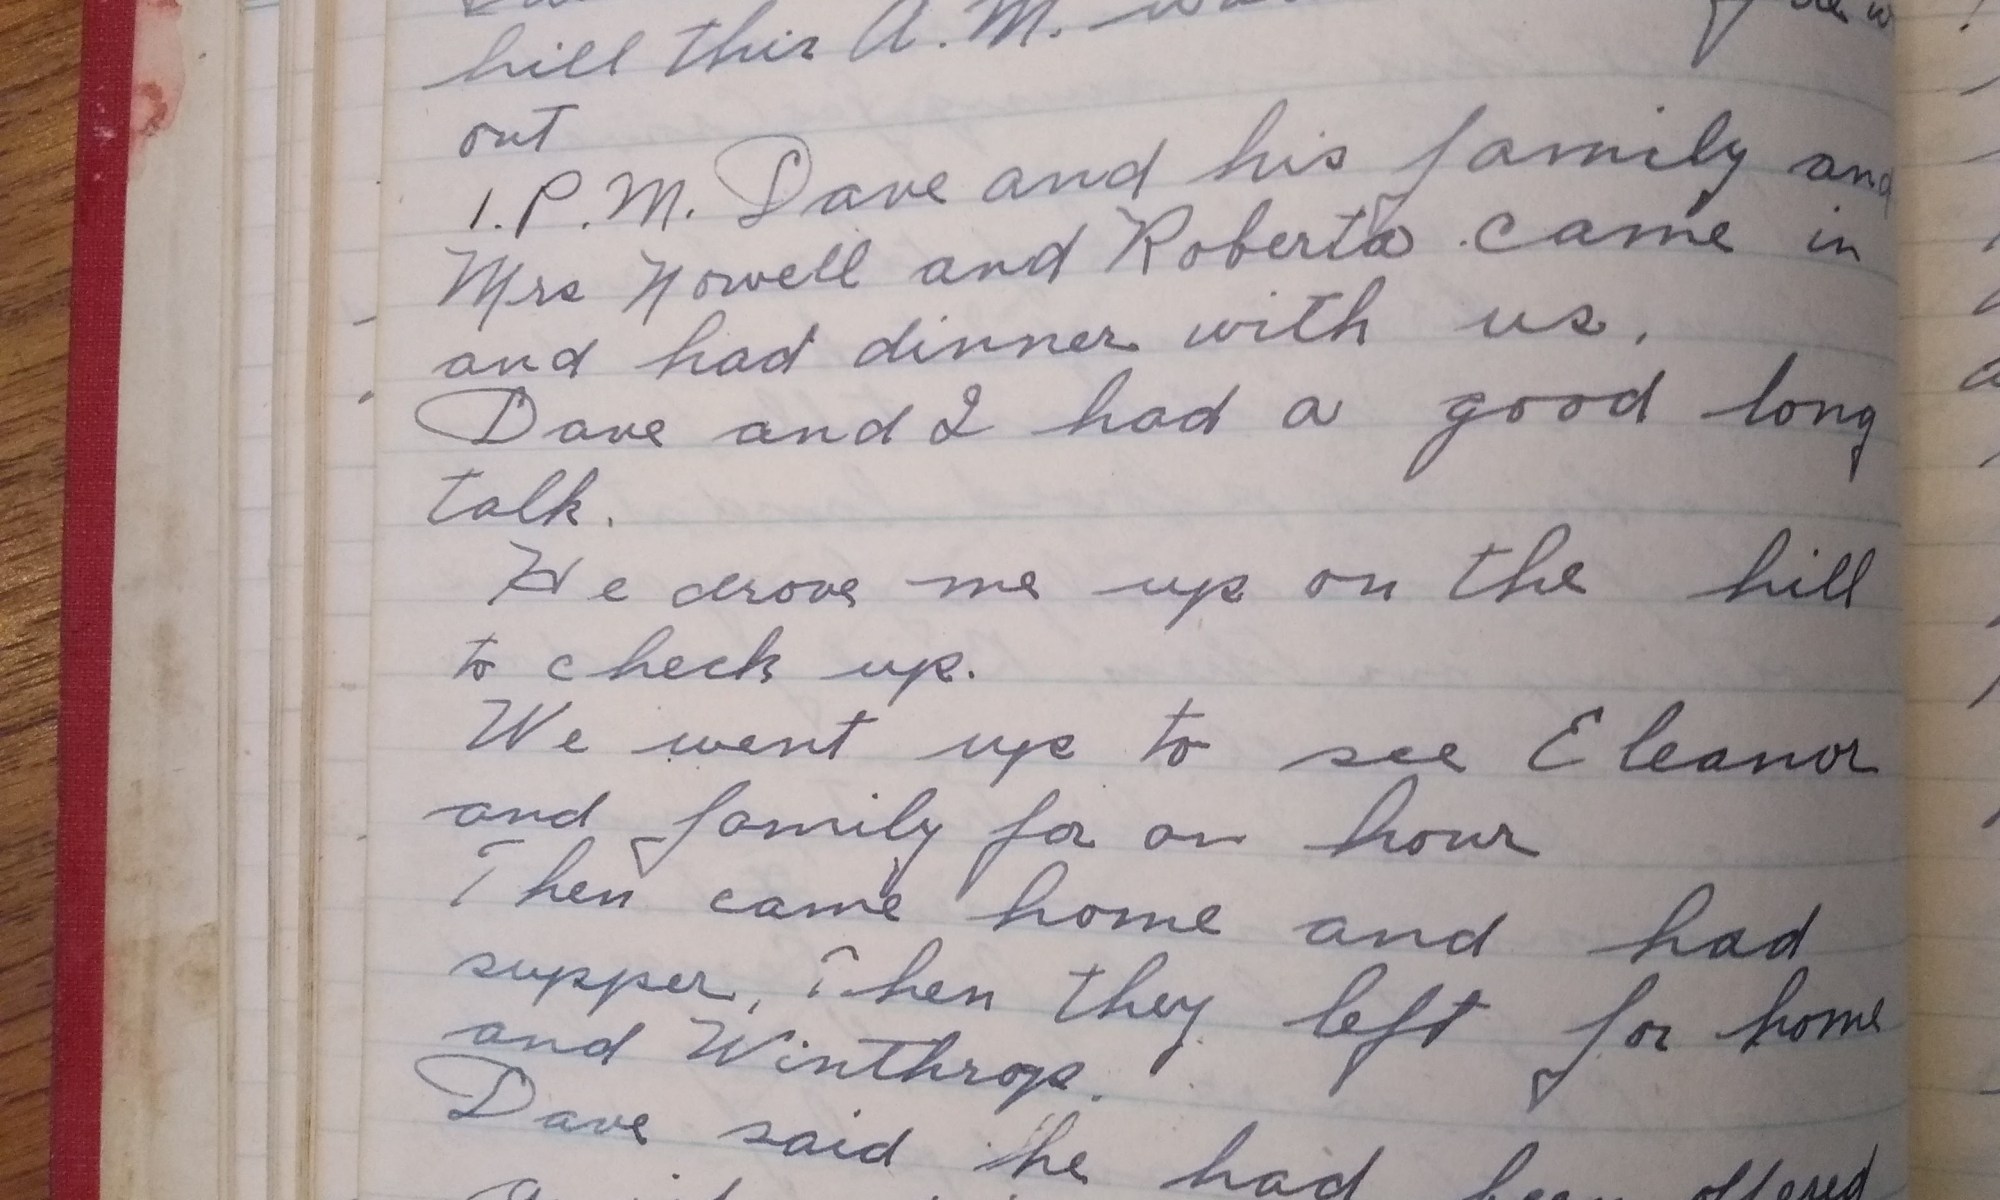 hill this A.M.
out
1.P.M. Dave and his family and
Mrs Nowell and Roberta came in
and had dinner with us.
Dave and I had a good long
talk.
He drove me up on the hill
to check up.
We went up to see Eleanor
and family for an hour
Then came home and had
supper, Then they left for home
and Winthrop.
Dave said he had been offered